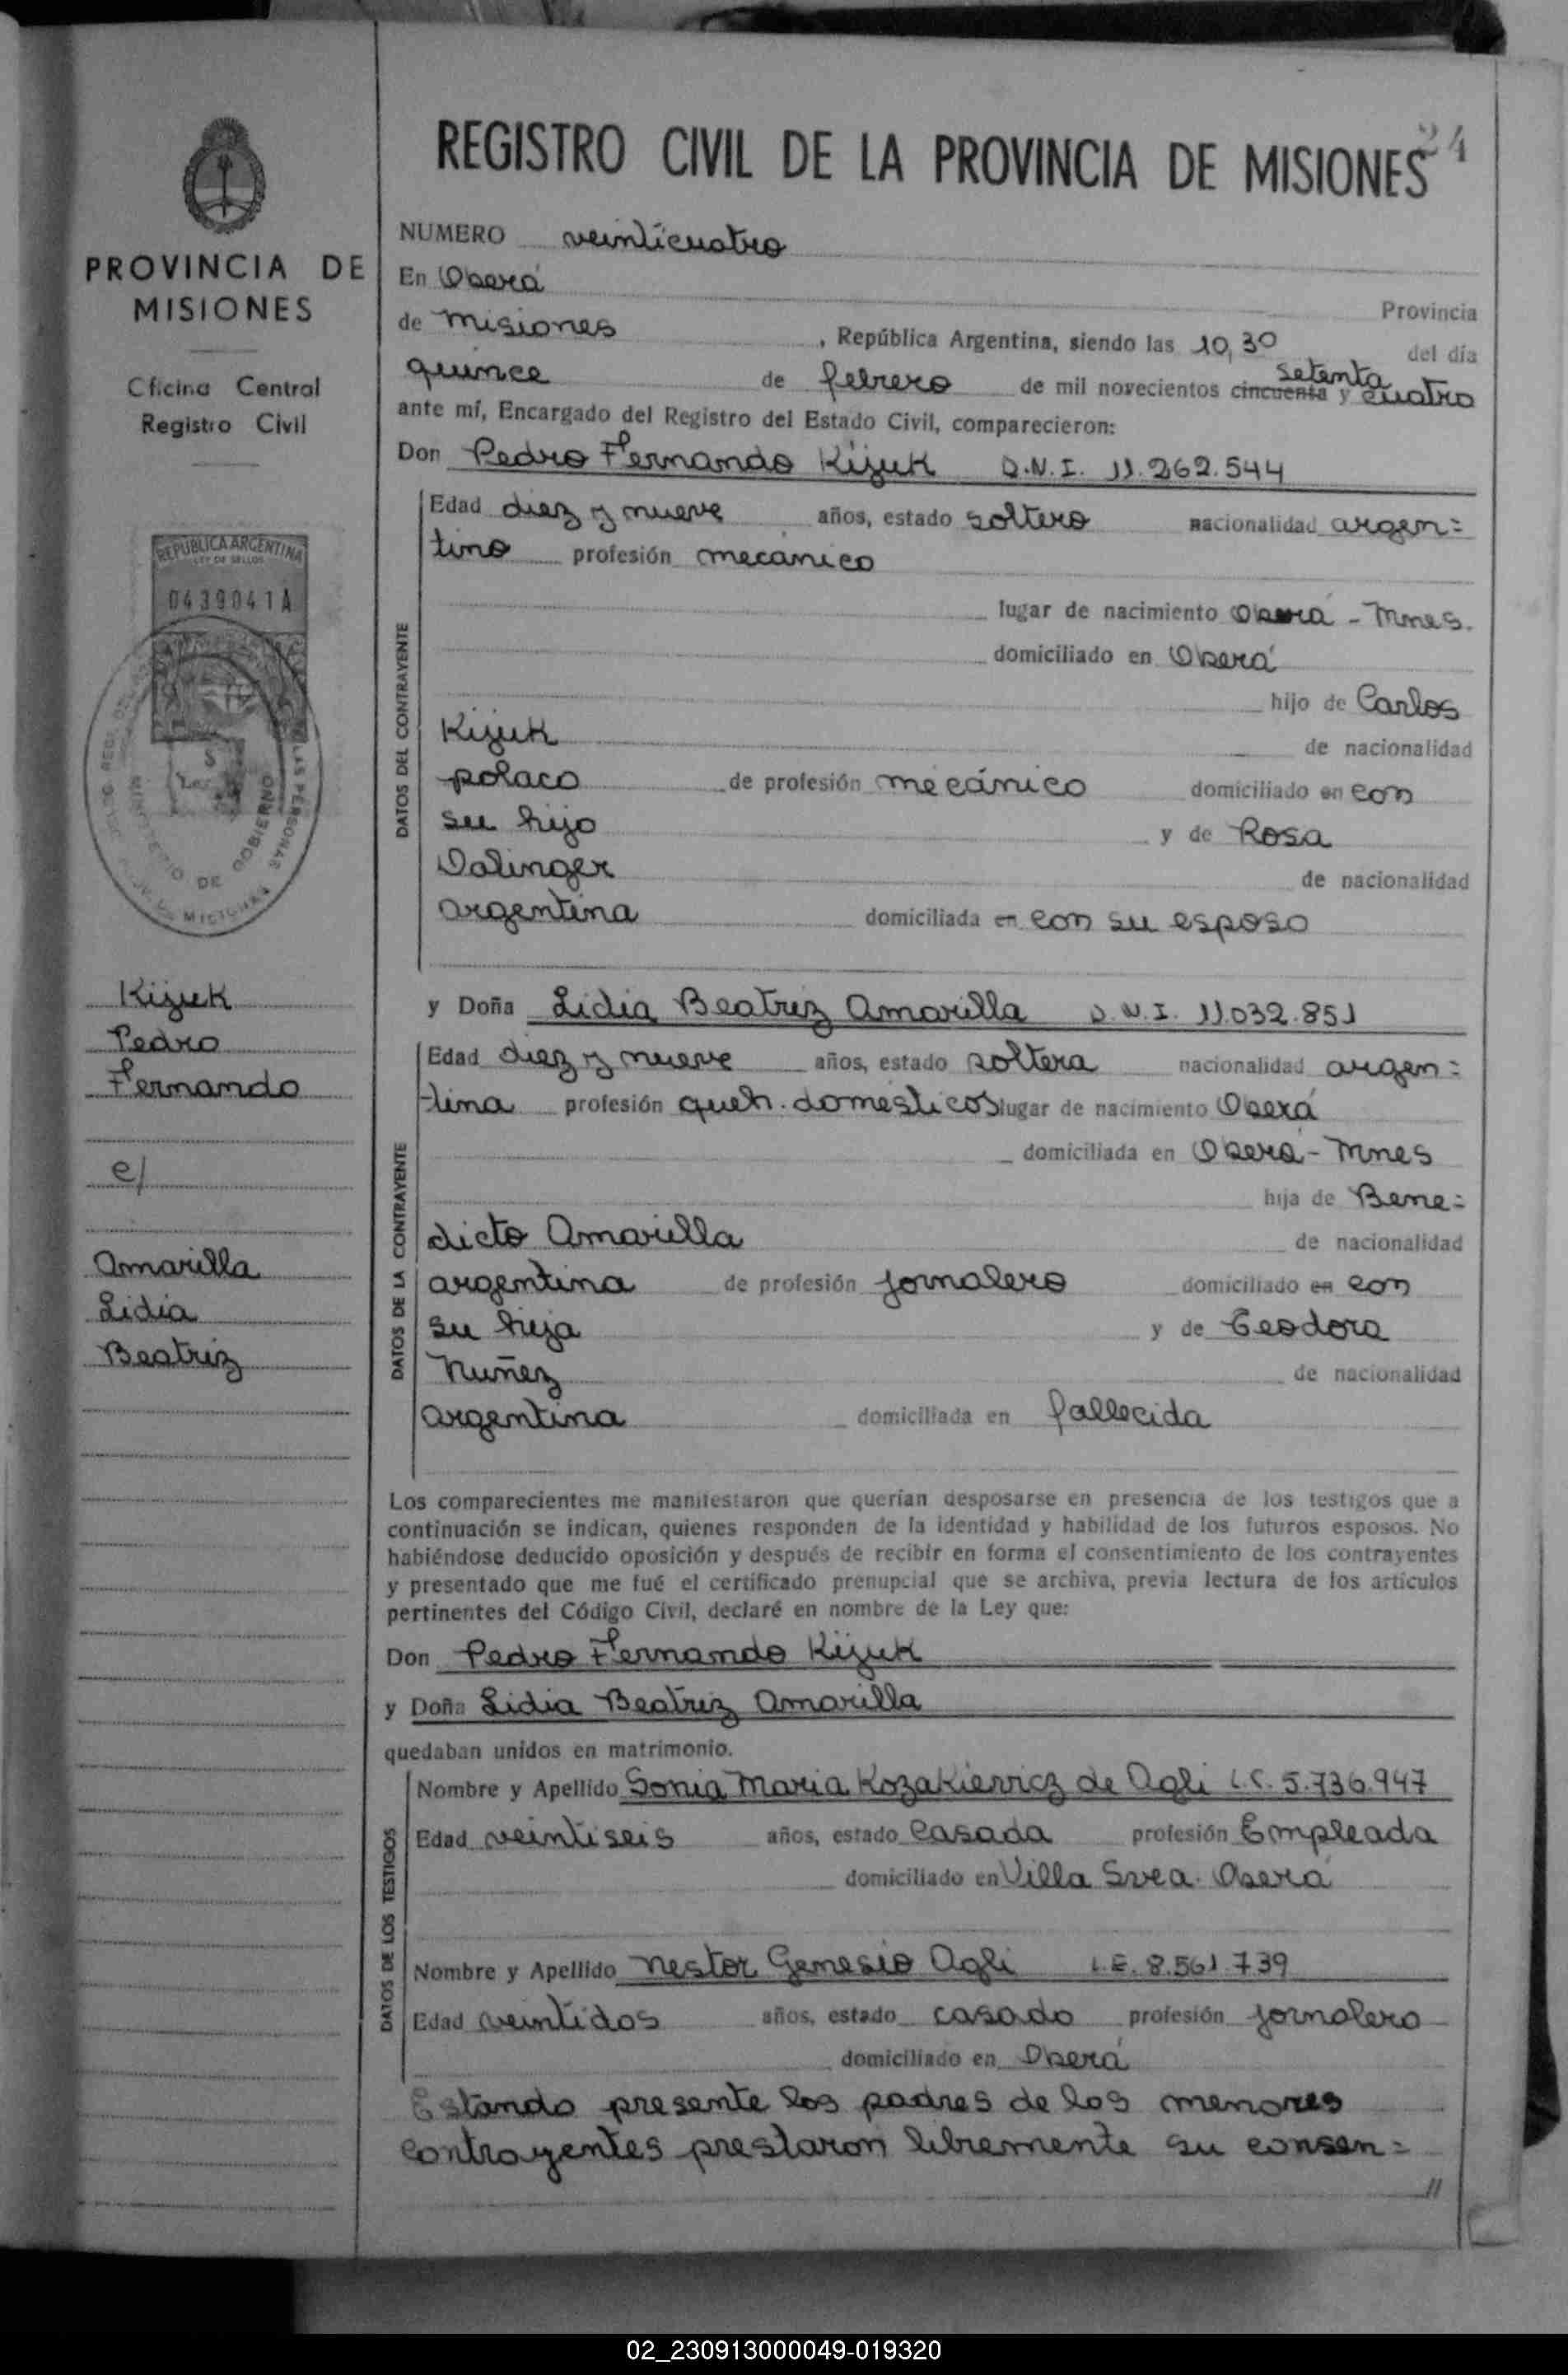 24
REGISTRO CIVIL DE LA PROVINCIA DE MISIONES
PROVINCIA DE
MISIONES
Oficina Central
Registro Civil
REPUBLICA ARGENTINA
LEY DE SELLOS
0439041A
MINISTERIO DE GOBIERNO
LAS PERSONAS
MISIONES
Kijuk
Pedro
Fernando
c/
Amarilla
Lidia
Beatriz
NUMERO veinticuatro
En Oberá
Provincia
de Misiones, República Argentina, siendo las 10,30 del día
quince de febrero de mil novecientos cincuenta setenta y cuatro
ante mí, Encargado del Registro del Estado Civil, comparecieron:
Don Pedro Fernando Kijuk D.N.I. 11.262.544
DATOS DEL CONTRAYENTE
Edad diez y nueve años, estado soltero nacionalidad argen=
tino profesión mecánico
lugar de nacimiento Oberá - Mnes.
domiciliado en Oberá
hijo de Carlos
Kijuk de nacionalidad
polaco de profesión mecánico domiciliado en con
su hijo y de Rosa
Dalinger de nacionalidad
argentina domiciliada en con su esposo
y Doña Lidia Beatriz Amarilla D.N.I. 11.032.851
DATOS DE LA CONTRAYENTE
Edad diez y nueve años, estado soltera nacionalidad argen=
tina profesión queh. domésticos lugar de nacimiento Oberá
domiciliada en Oberá - Mnes
hija de Bene=
dicto Amarilla de nacionalidad
argentina de profesión jornalero domiciliado en con
su hija y de Teodora
Nuñez de nacionalidad
argentina domiciliada en fallecida
Los comparecientes me manifestaron que querían desposarse en presencia de los testigos que a
continuación se indican, quienes responden de la identidad y habilidad de los futuros esposos. No
habiéndose deducido oposición y después de recibir en forma el consentimiento de los contrayentes
y presentado que me fué el certificado prenupcial que se archiva, previa lectura de los artículos
pertinentes del Código Civil, declaré en nombre de la Ley que:
Don Pedro Fernando Kijuk
y Doña Lidia Beatriz Amarilla
quedaban unidos en matrimonio.
DATOS DE LOS TESTIGOS
Nombre y Apellido Sonia Maria Kozakievicz de Agli L.C. 5.736.947
Edad veintiseis años, estado Casada profesión Empleada
domiciliado en Villa Svea - Oberá
Nombre y Apellido Nestor Genesio Agli L.E. 8.561.739
Edad veintidos años, estado casado profesión jornalero
domiciliado en Oberá
Estando presente los padres de los menores
contrayentes prestaron libremente su consen=
//
02_230913000049-019320